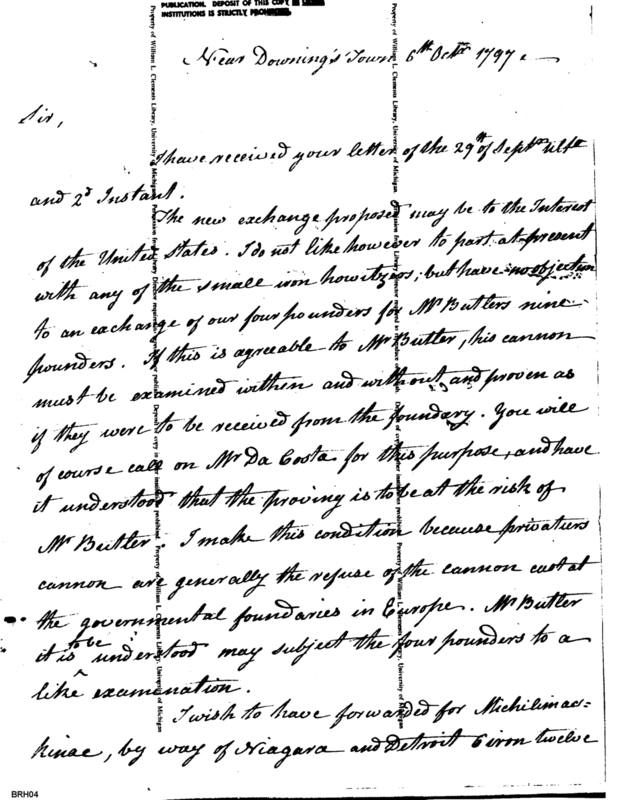 PUBLICATION. DEPOSIT OF THIS COPY IN
INSTITUTIONS IS STRICTLY PROHIBITED.
Near Downing's Town 6th Octr 1797.
Sir,
I have received your letter of the 29th of Septr ulto
and 2d Instant.
The new exchange proposed may be to the Interest
of the United States. I do not like however to part at present
with any of the small iron howitzers, but have no objection
to an exchange of our four pounders for Mr Butlers nine
pounders. If this is agreeable to Mr Butler, his cannon
must be examined withen and without, and proven as
if they were to be received from the foundary. You will
of course call on Mr Da Costa for this purpose, and have
it understood that the proving is to be at the risk of
Mr Butler. I make this condition because privatiers
cannon are generally the refuse of the cannon cast at
the governmental foundaries in Europe. Mr Butler
it is to be understood may subject the four pounders to a
like examenation.
I wish to have forwarded for Michilimac=
kinac, by way of Niagara and Detroit 6 iron twelve
Property of William L. Clements Library, University of Michigan
BRH04